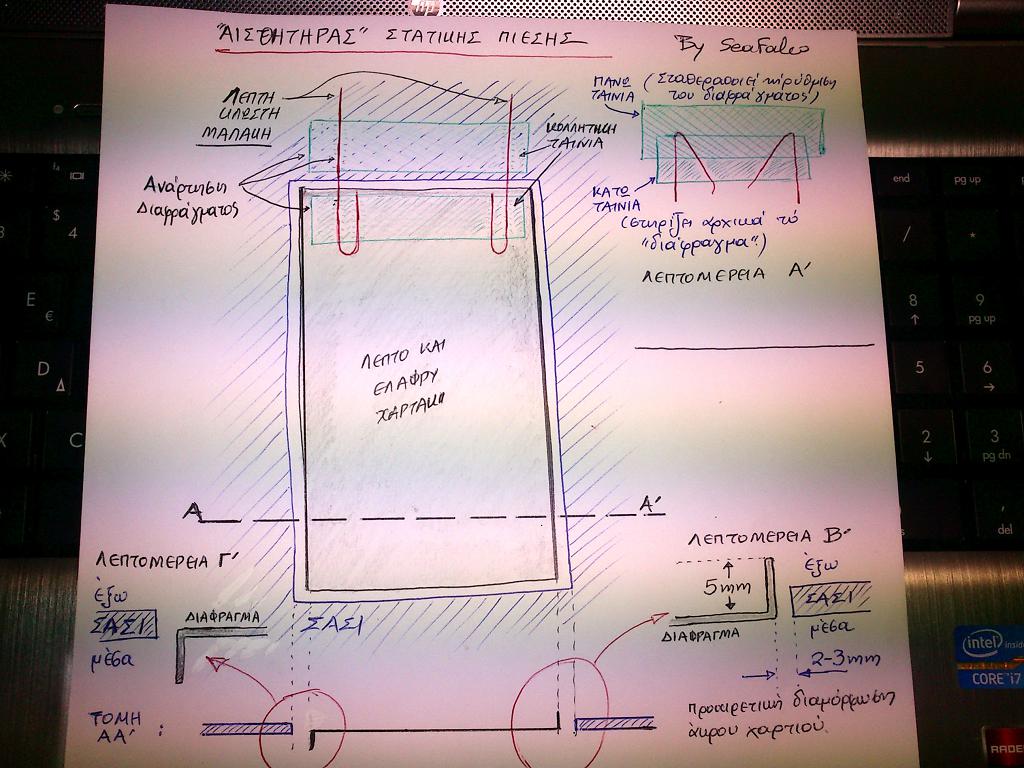 "ΑΙΣΘΗΤΗΡΑΣ" ΣΤΑΤΙΚΗΣ ΠΙΕΣΗΣ
By SeaFalco
ΛΕΠΤΗ
ΚΛΩΣΤΗ
ΜΑΛΑΚΗ
ΚΟΛΛΗΤΙΚΗ
ΤΑΙΝΙΑ
Ανάρτηση
Διαφράγματος
ΠΑΝΩ
ΤΑΙΝΙΑ
(Σταθεροποιεί τη ρύθμιση
του διαφράγματος)
ΚΑΤΩ
ΤΑΙΝΙΑ
(Στηρίζει αρχικά το
"διάφραγμα")
ΛΕΠΤΟΜΕΡΕΙΑ Α'
ΛΕΠΤΟ ΚΑΙ
ΕΛΑΦΡΥ
ΧΑΡΤΑΚΙ
Α
Α'
ΛΕΠΤΟΜΕΡΕΙΑ Γ'
έξω
ΣΑΣΙ
μέσα
ΔΙΑΦΡΑΓΜΑ
ΣΑΣΙ
ΛΕΠΤΟΜΕΡΕΙΑ Β'
5mm
ΔΙΑΦΡΑΓΜΑ
έξω
ΣΑΣΙ
μέσα
2-3mm
προαιρετική διαμόρφωση
άκρου χαρτιού.
ΤΟΜΗ
ΑΑ' :
hp
$
3
4
E
€
D
Δ
X
C
end
pg up
/
*
8
↑
9
pg up
5
6
→
2
↓
3
pg dn
del
intel inside
CORE i7